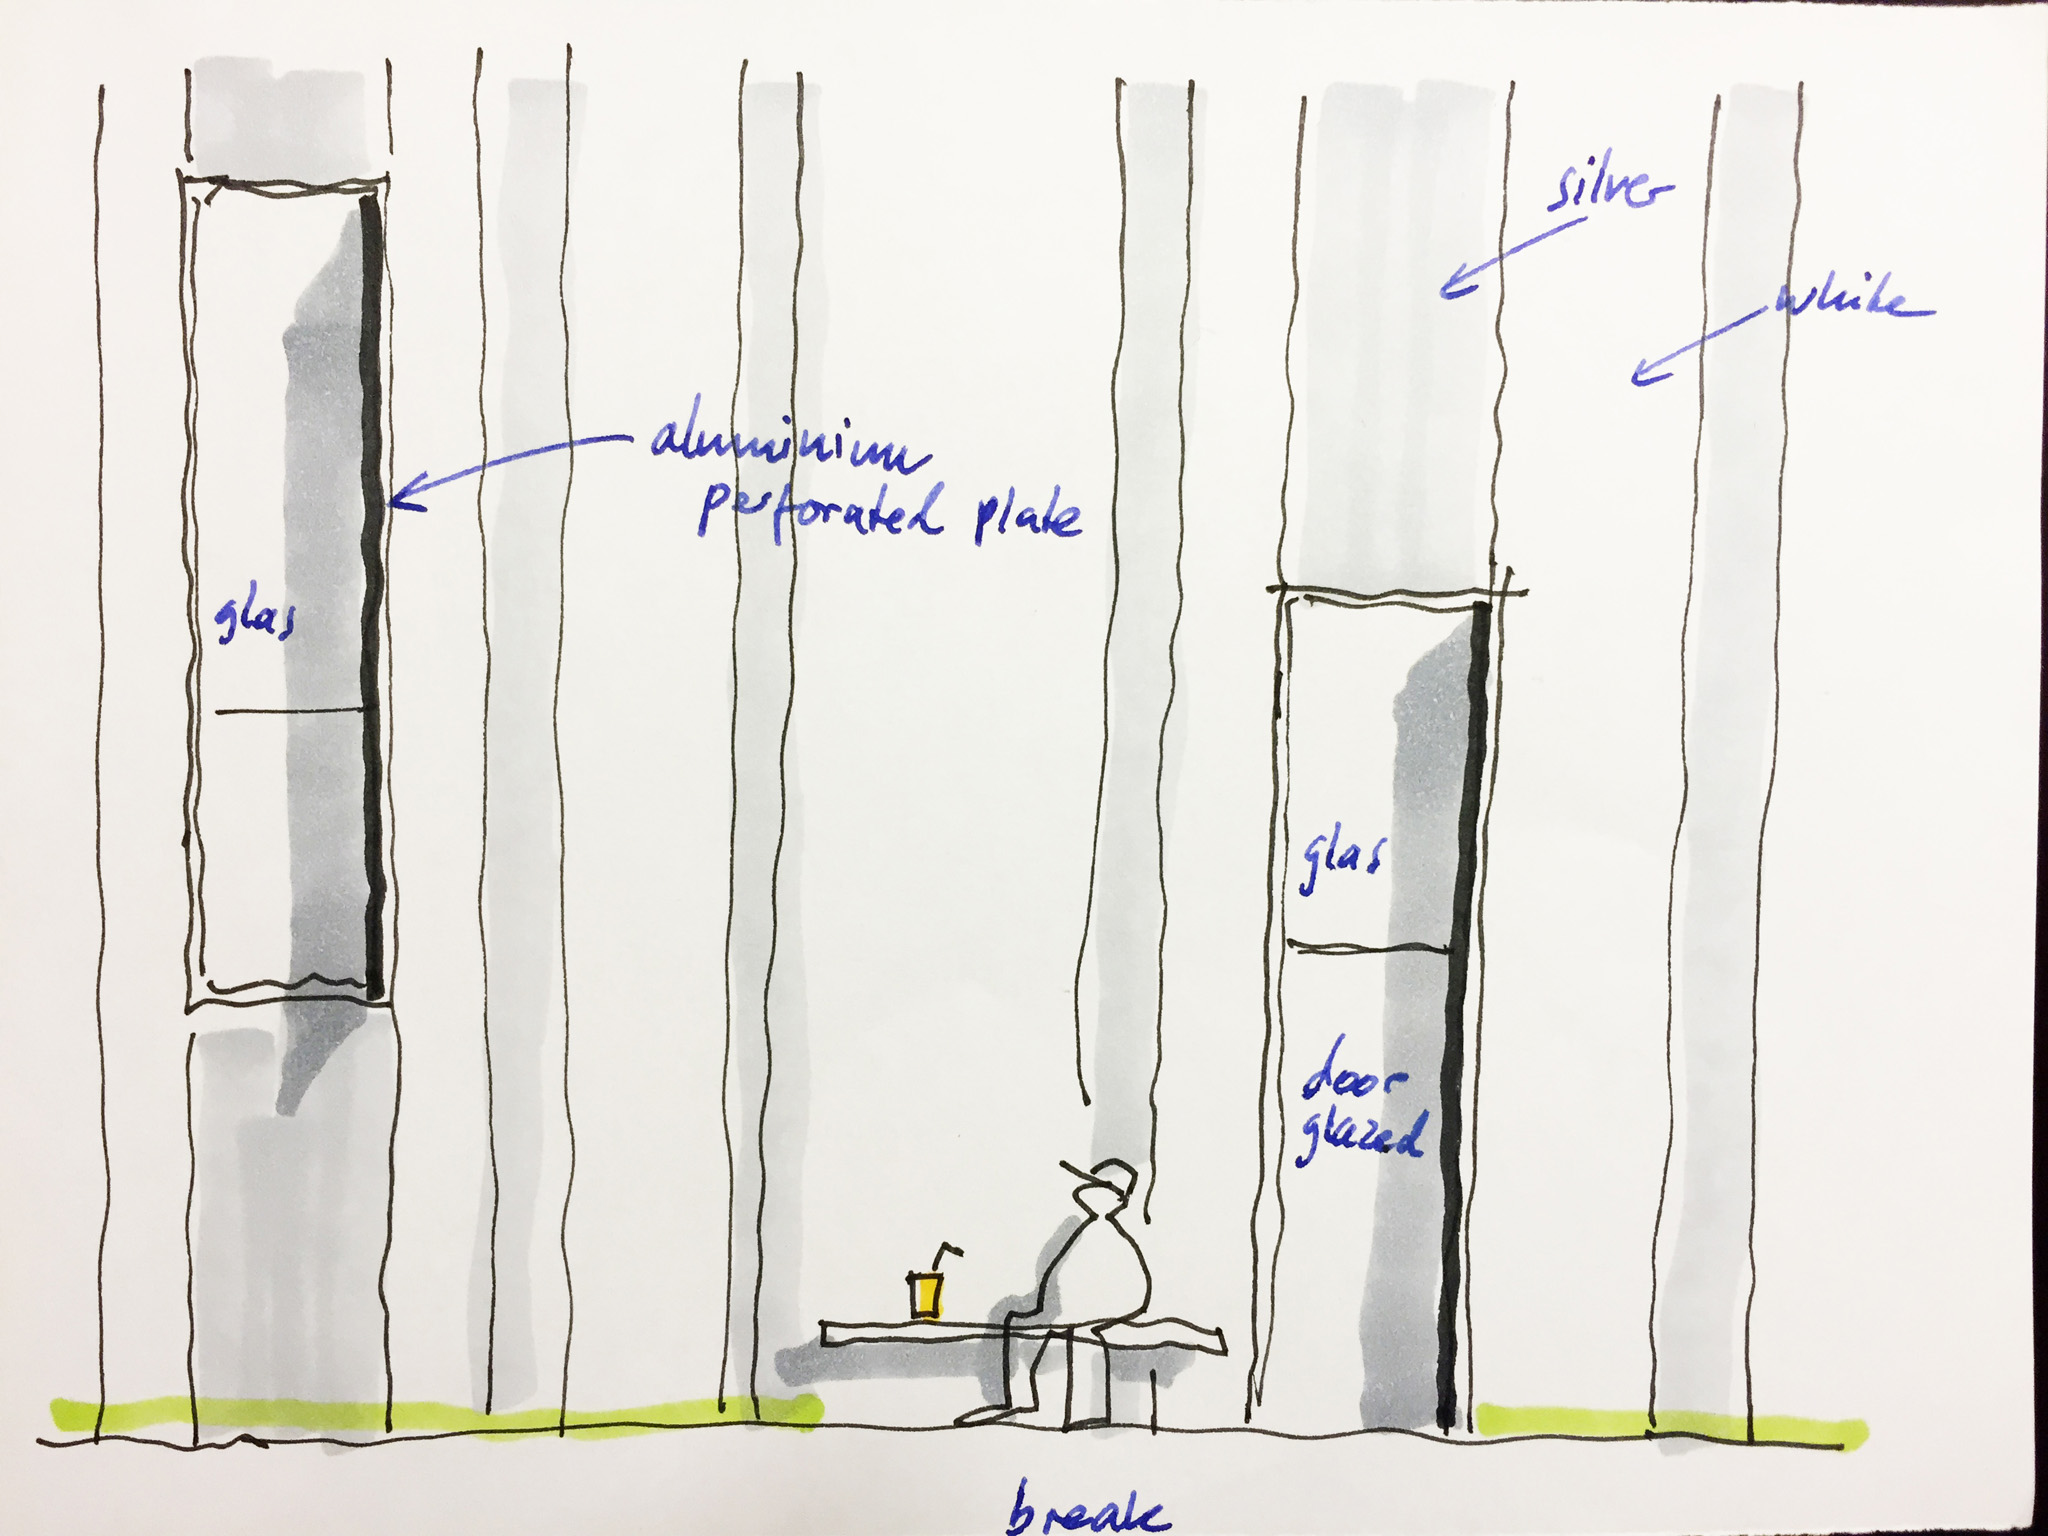 silver
white
aluminium
perforated plate
glas
glas
door
glazed
break